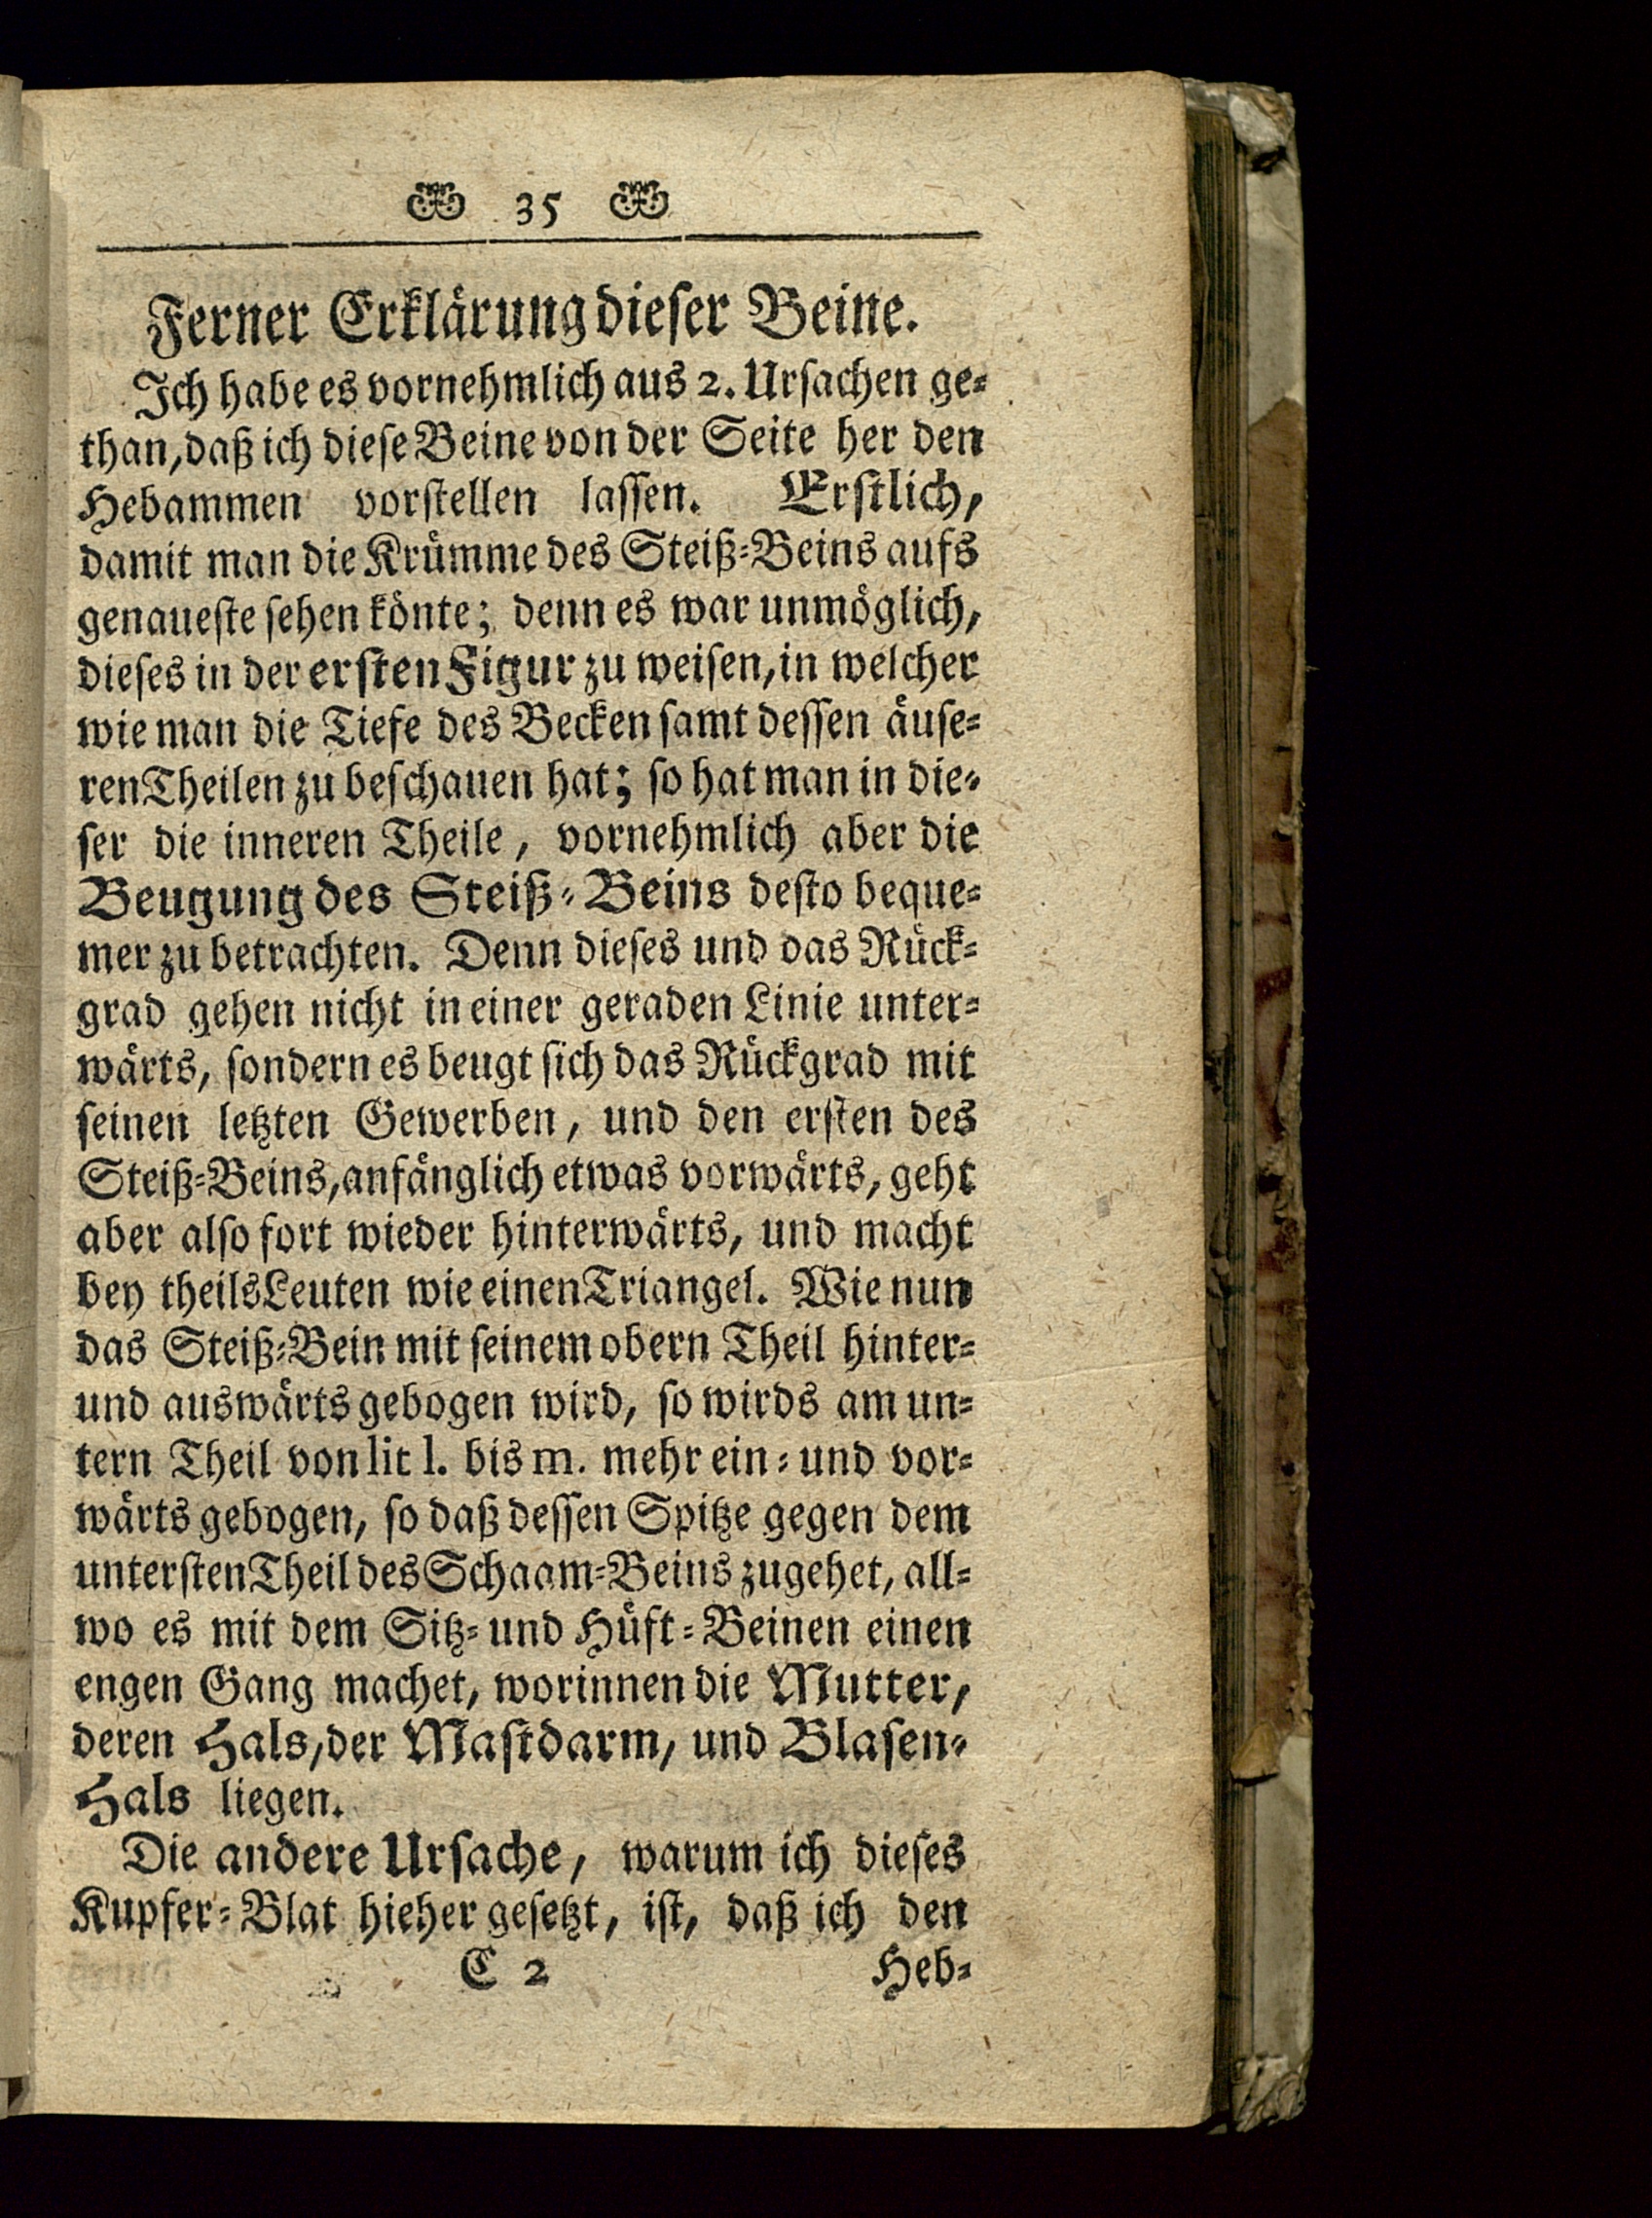 35
Ferner Erklärung dieser Beine.
Ich habe es vornehmlich aus 2. Ursachen ge-
than, daß ich diese Beine von der Seite her den
Hebammen vorstellen lassen. Erstlich,
damit man die Krümme des Steiß-Beins aufs
genaueste sehen könte; denn es war unmöglich,
dieses in der ersten Figur zu weisen, in welcher
wie man die Tiefe des Becken samt dessen äuse-
ren Theilen zu beschauen hat; so hat man in die-
ser die inneren Theile, vornehmlich aber die
Beugung des Steiß-Beins desto beque-
mer zu betrachten. Denn dieses und das Rück-
grad gehen nicht in einer geraden Linie unter-
wärts, sondern es beugt sich das Rückgrad mit
seinen letzten Gewerben, und den ersten des
Steiß-Beins, anfänglich etwas vorwärts, geht
aber also fort wieder hinterwärts, und macht
bey theils Leuten wie einen Triangel. Wie nun
das Steiß-Bein mit seinem obern Theil hinter-
und auswärts gebogen wird, so wirds am un-
tern Theil von lit l. bis m. mehr ein- und vor-
wärts gebogen, so daß dessen Spitze gegen dem
untersten Theil des Schaam-Beins zugehet, all-
wo es mit dem Sitz- und Hüft-Beinen einen
engen Gang machet, worinnen die Mutter,
deren Hals, der Mastdarm, und Blasen-
Hals liegen.
Die andere Ursache, warum ich dieses
Kupfer-Blat hieher gesetzt, ist, daß ich den
C 2 Heb-